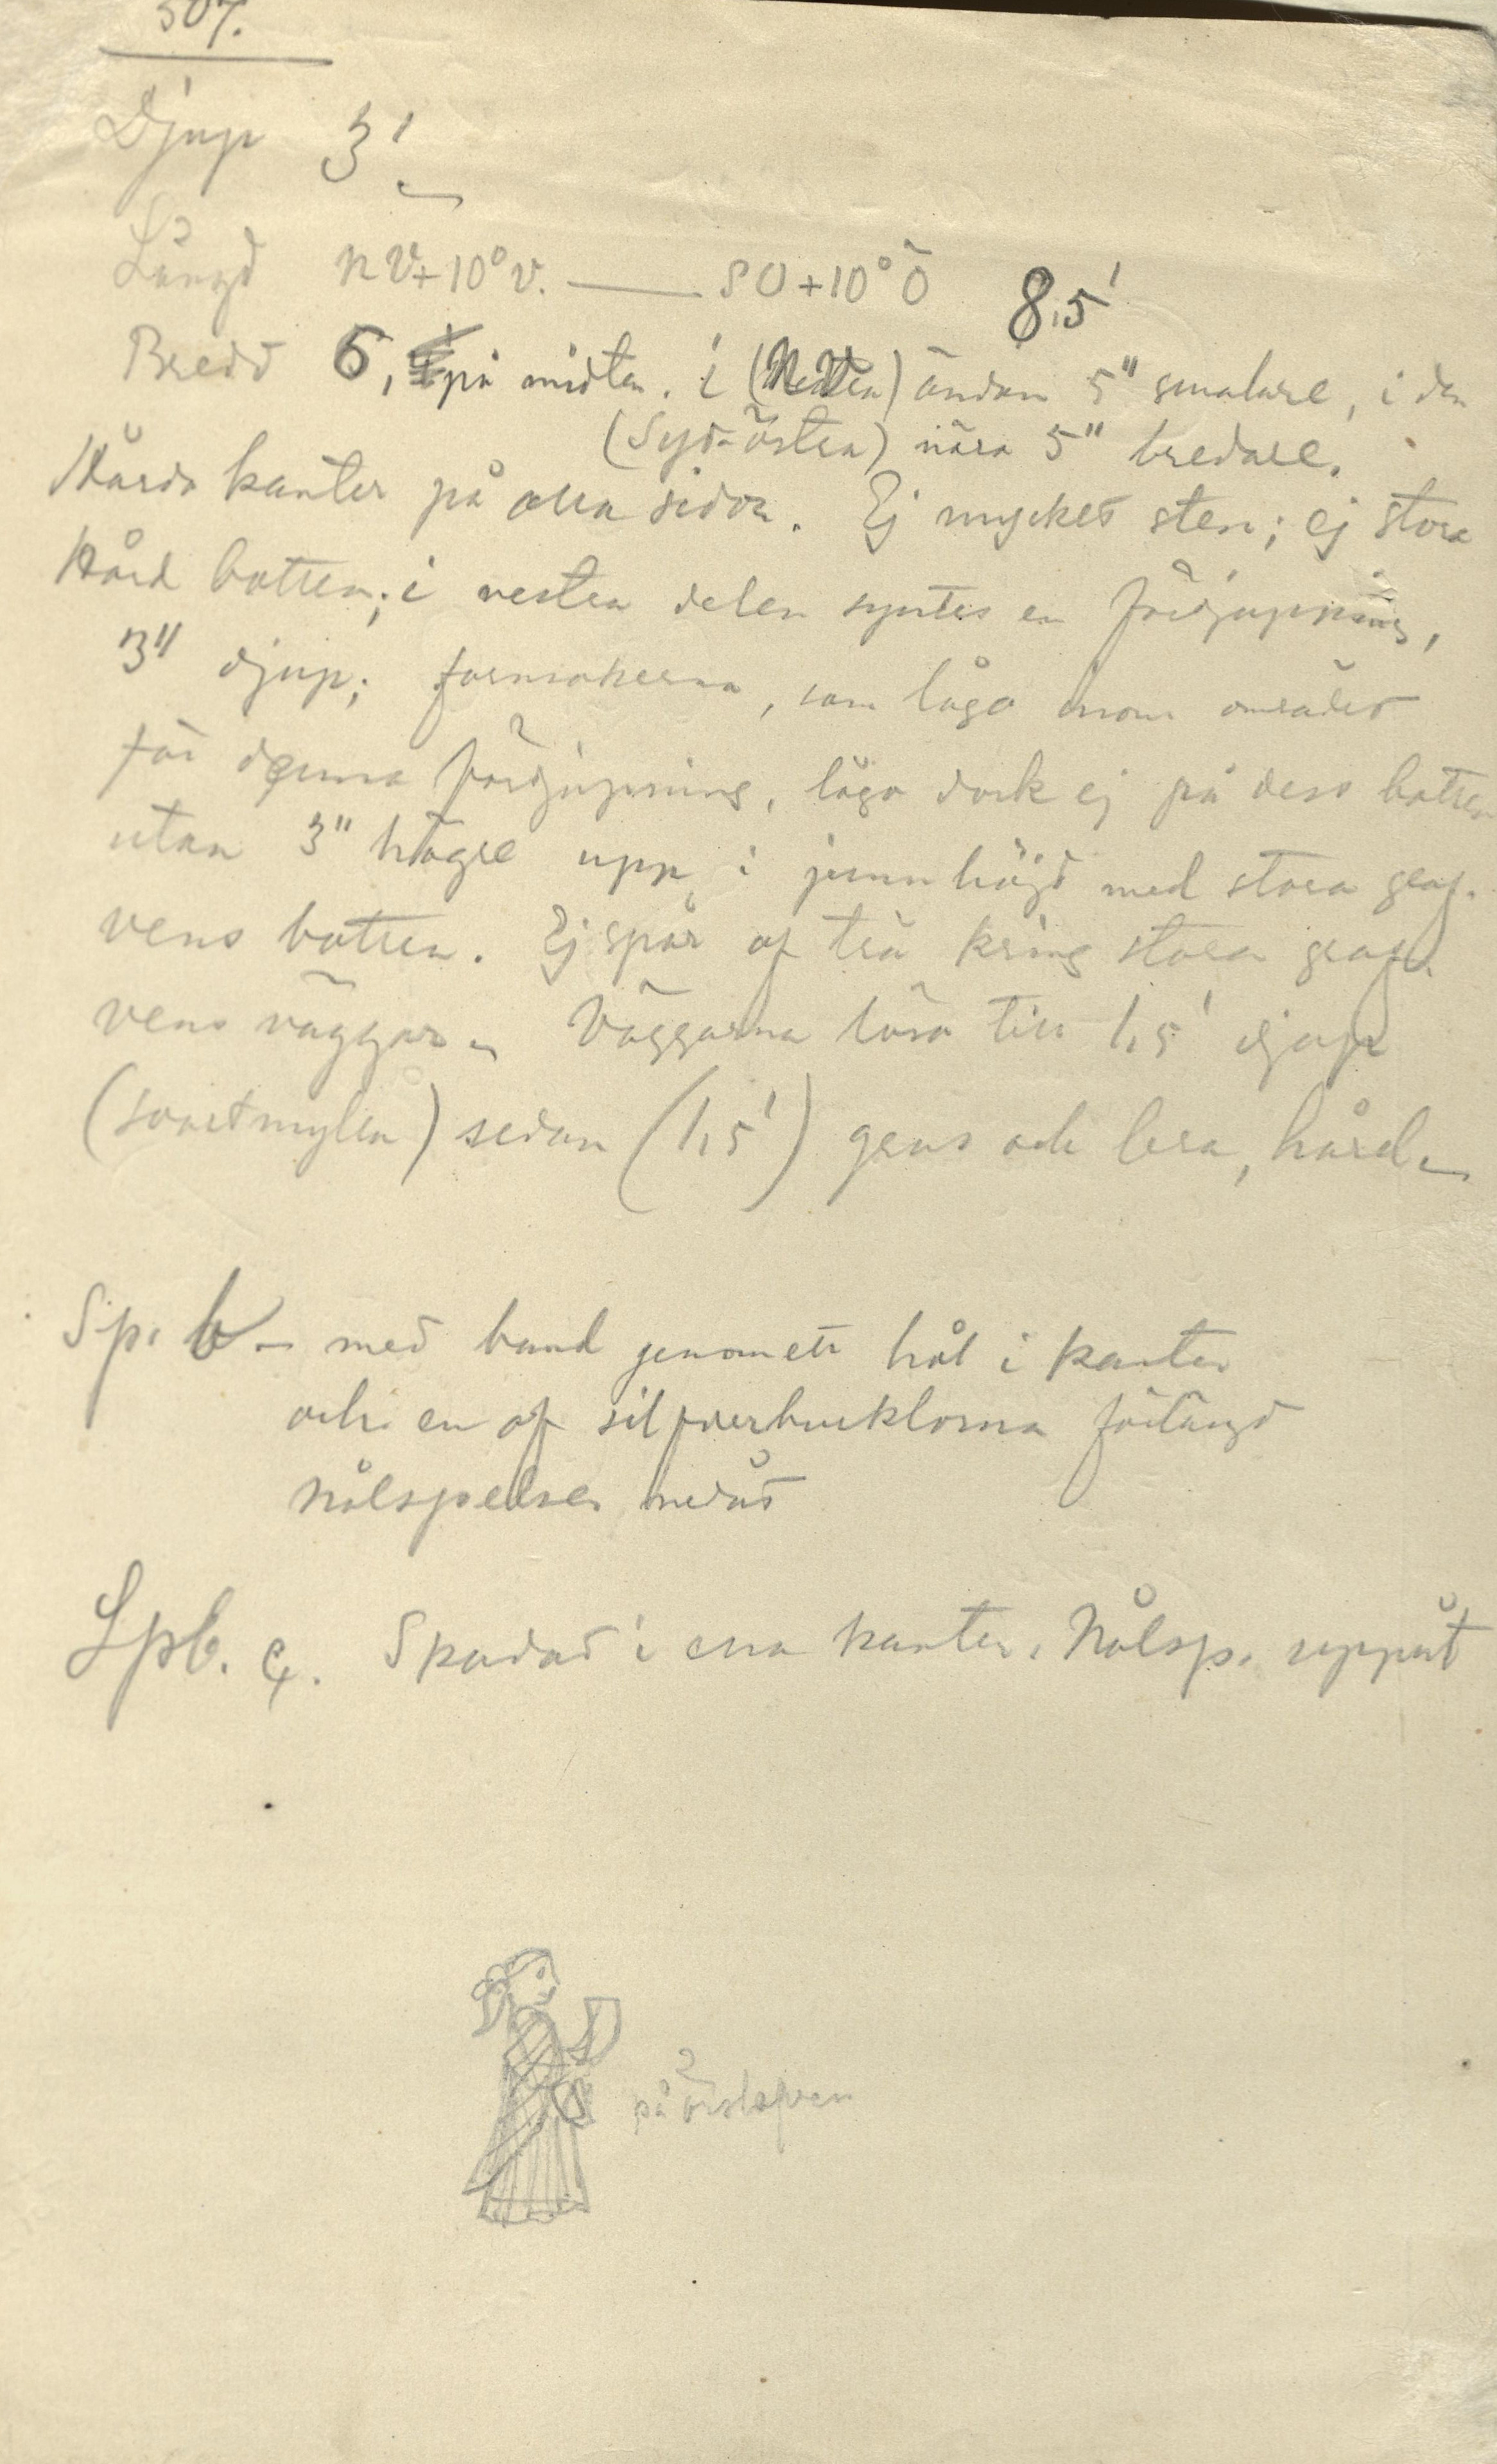 507.
Djup 3'
Längd NV+10°V. — SO+10°Ö 8,5'
Bredd 6, på midten. i () ändan 5" smalare, i den
(Syd-östra) nära 5" bredare.
Hårda kanter på alla sidor. Ej mycket sten; ej stora
Hård botten; i vestra delen syntes en fördjupning,
3" djup; fornsakerna, som lågo inom området
för denna fördjupning, lågo dock ej på dess botten
utan 3" högre upp, i jemnhöjd med stora graf-
vens botten. Ej spår af trä kring stora graf-
vens väggar. Väggarna lösa till 1,5' djup
(svartmylla) sedan (1,5') grus och lera, hård.
Sp. b – med band genom ett hål i kanten
och en af silfverbucklorna förlängd
nålspetsen nedåt
Spb. c. Skadad i ena kanten. Nålsp. uppåt
på örslefven